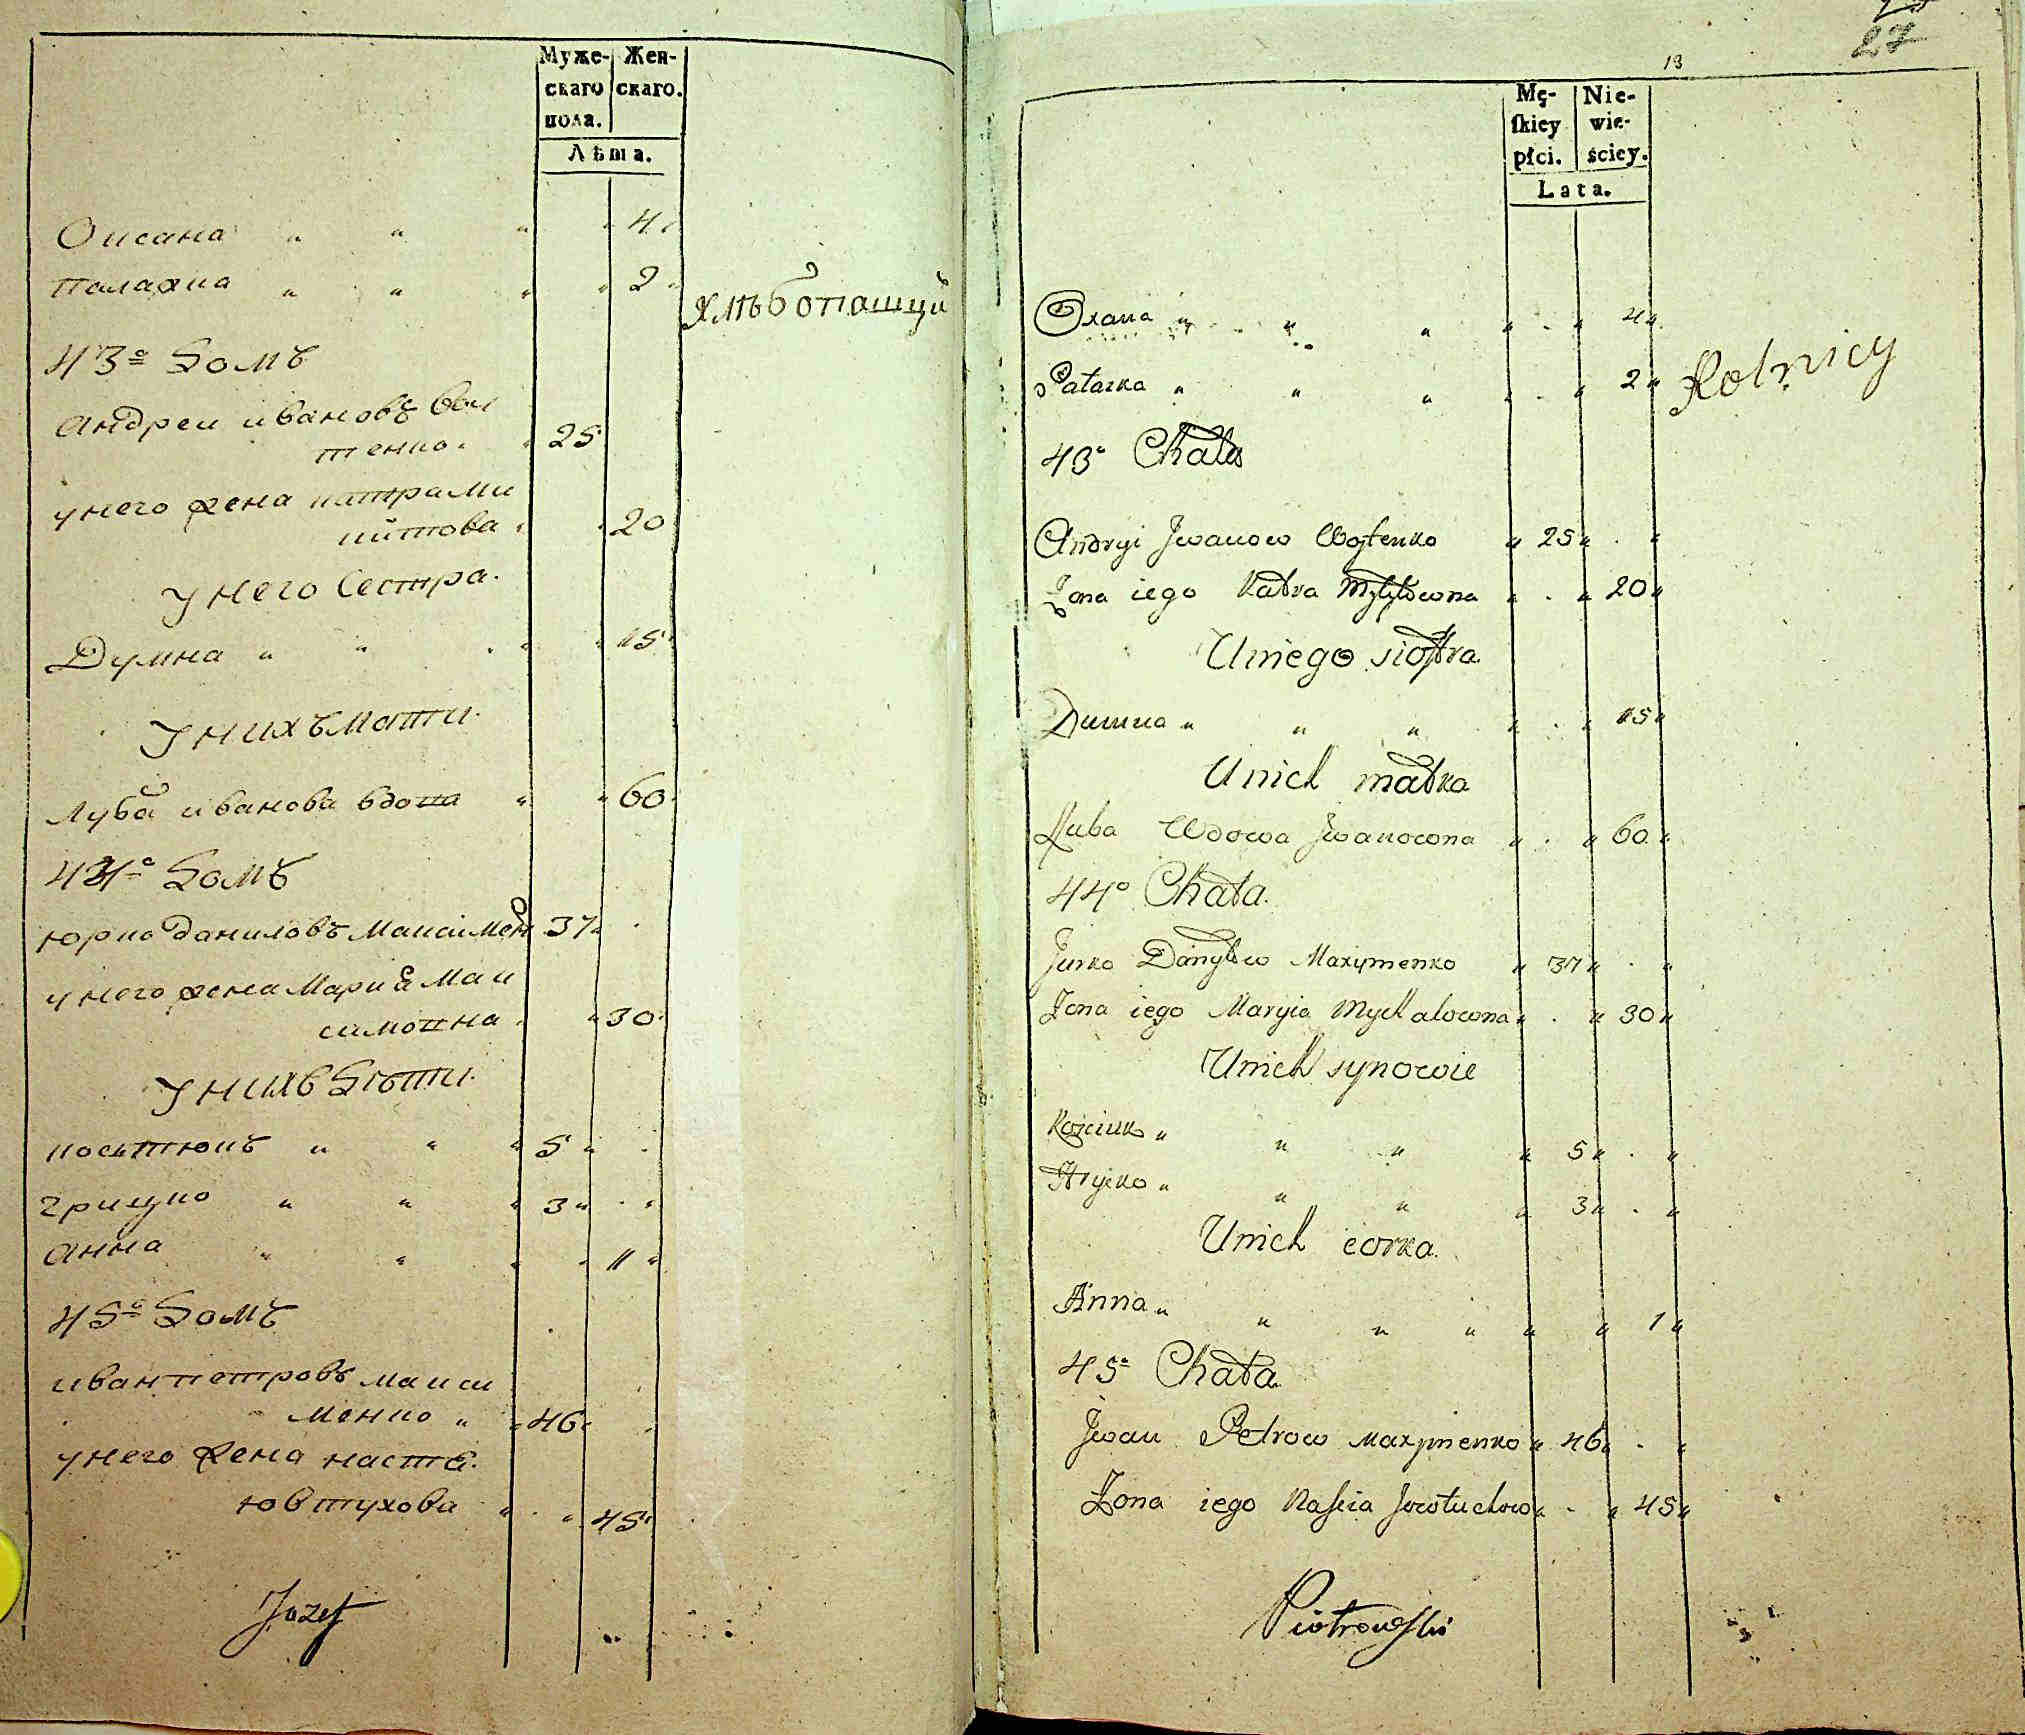 Муже- Жен-
скаго скаго.
пола.
Лѣта.
Оксана " " " " 4 "
Палажка " " " " 2 "
Хлѣбопашцы
43º Домъ
Андреи ивановъ вои
тенко " " 25
у него жена катра ми
китова " " 20
у него сестра.
Думна " " " " 15 "
у нихъ мати.
Луба иванова вдова " " 60
44º Домъ
юрко даниловъ Максимен 37 "
у него жена Мариа Мак
симовна " " 30
у нихъ Дѣти.
костюкъ " " " 5 " "
грицко " " " 3 " "
Анна " " " " 1 "
45º Домъ
иван петровъ макси
менко " " 46
у него жена настя.
ювтухова " " 45 "
Jozef
27
13
Mę- Nie-
ſkiey wie-
płci. ściey.
Lata.
Oxana " " " " " 4 "
Palazka " " " " " 2 "
Rolnicy
43º Chata
Andryi Jwanow Woytenko " 25 " "
Żona iego Katra Mykytowna " " 20 "
U niego siostra
Dumna " " " " " 15 "
U nich matka
Luba Wdowa Jwanowna " " 60 "
44º Chata.
Jurko Danyłow Maxymenko " 37 " "
Żona iego Maryia Mychałowna " " 30 "
U nich synowie
Kościuk " " " " 5 " "
Hryćko " " " " 3 " "
U nich córka.
Anna " " " " " " 1 "
45º Chata
Jwan Petrow Maxymenko " 46 " "
Żona iego Naścia Jowtuchow " " 45 "
Piotrowſki